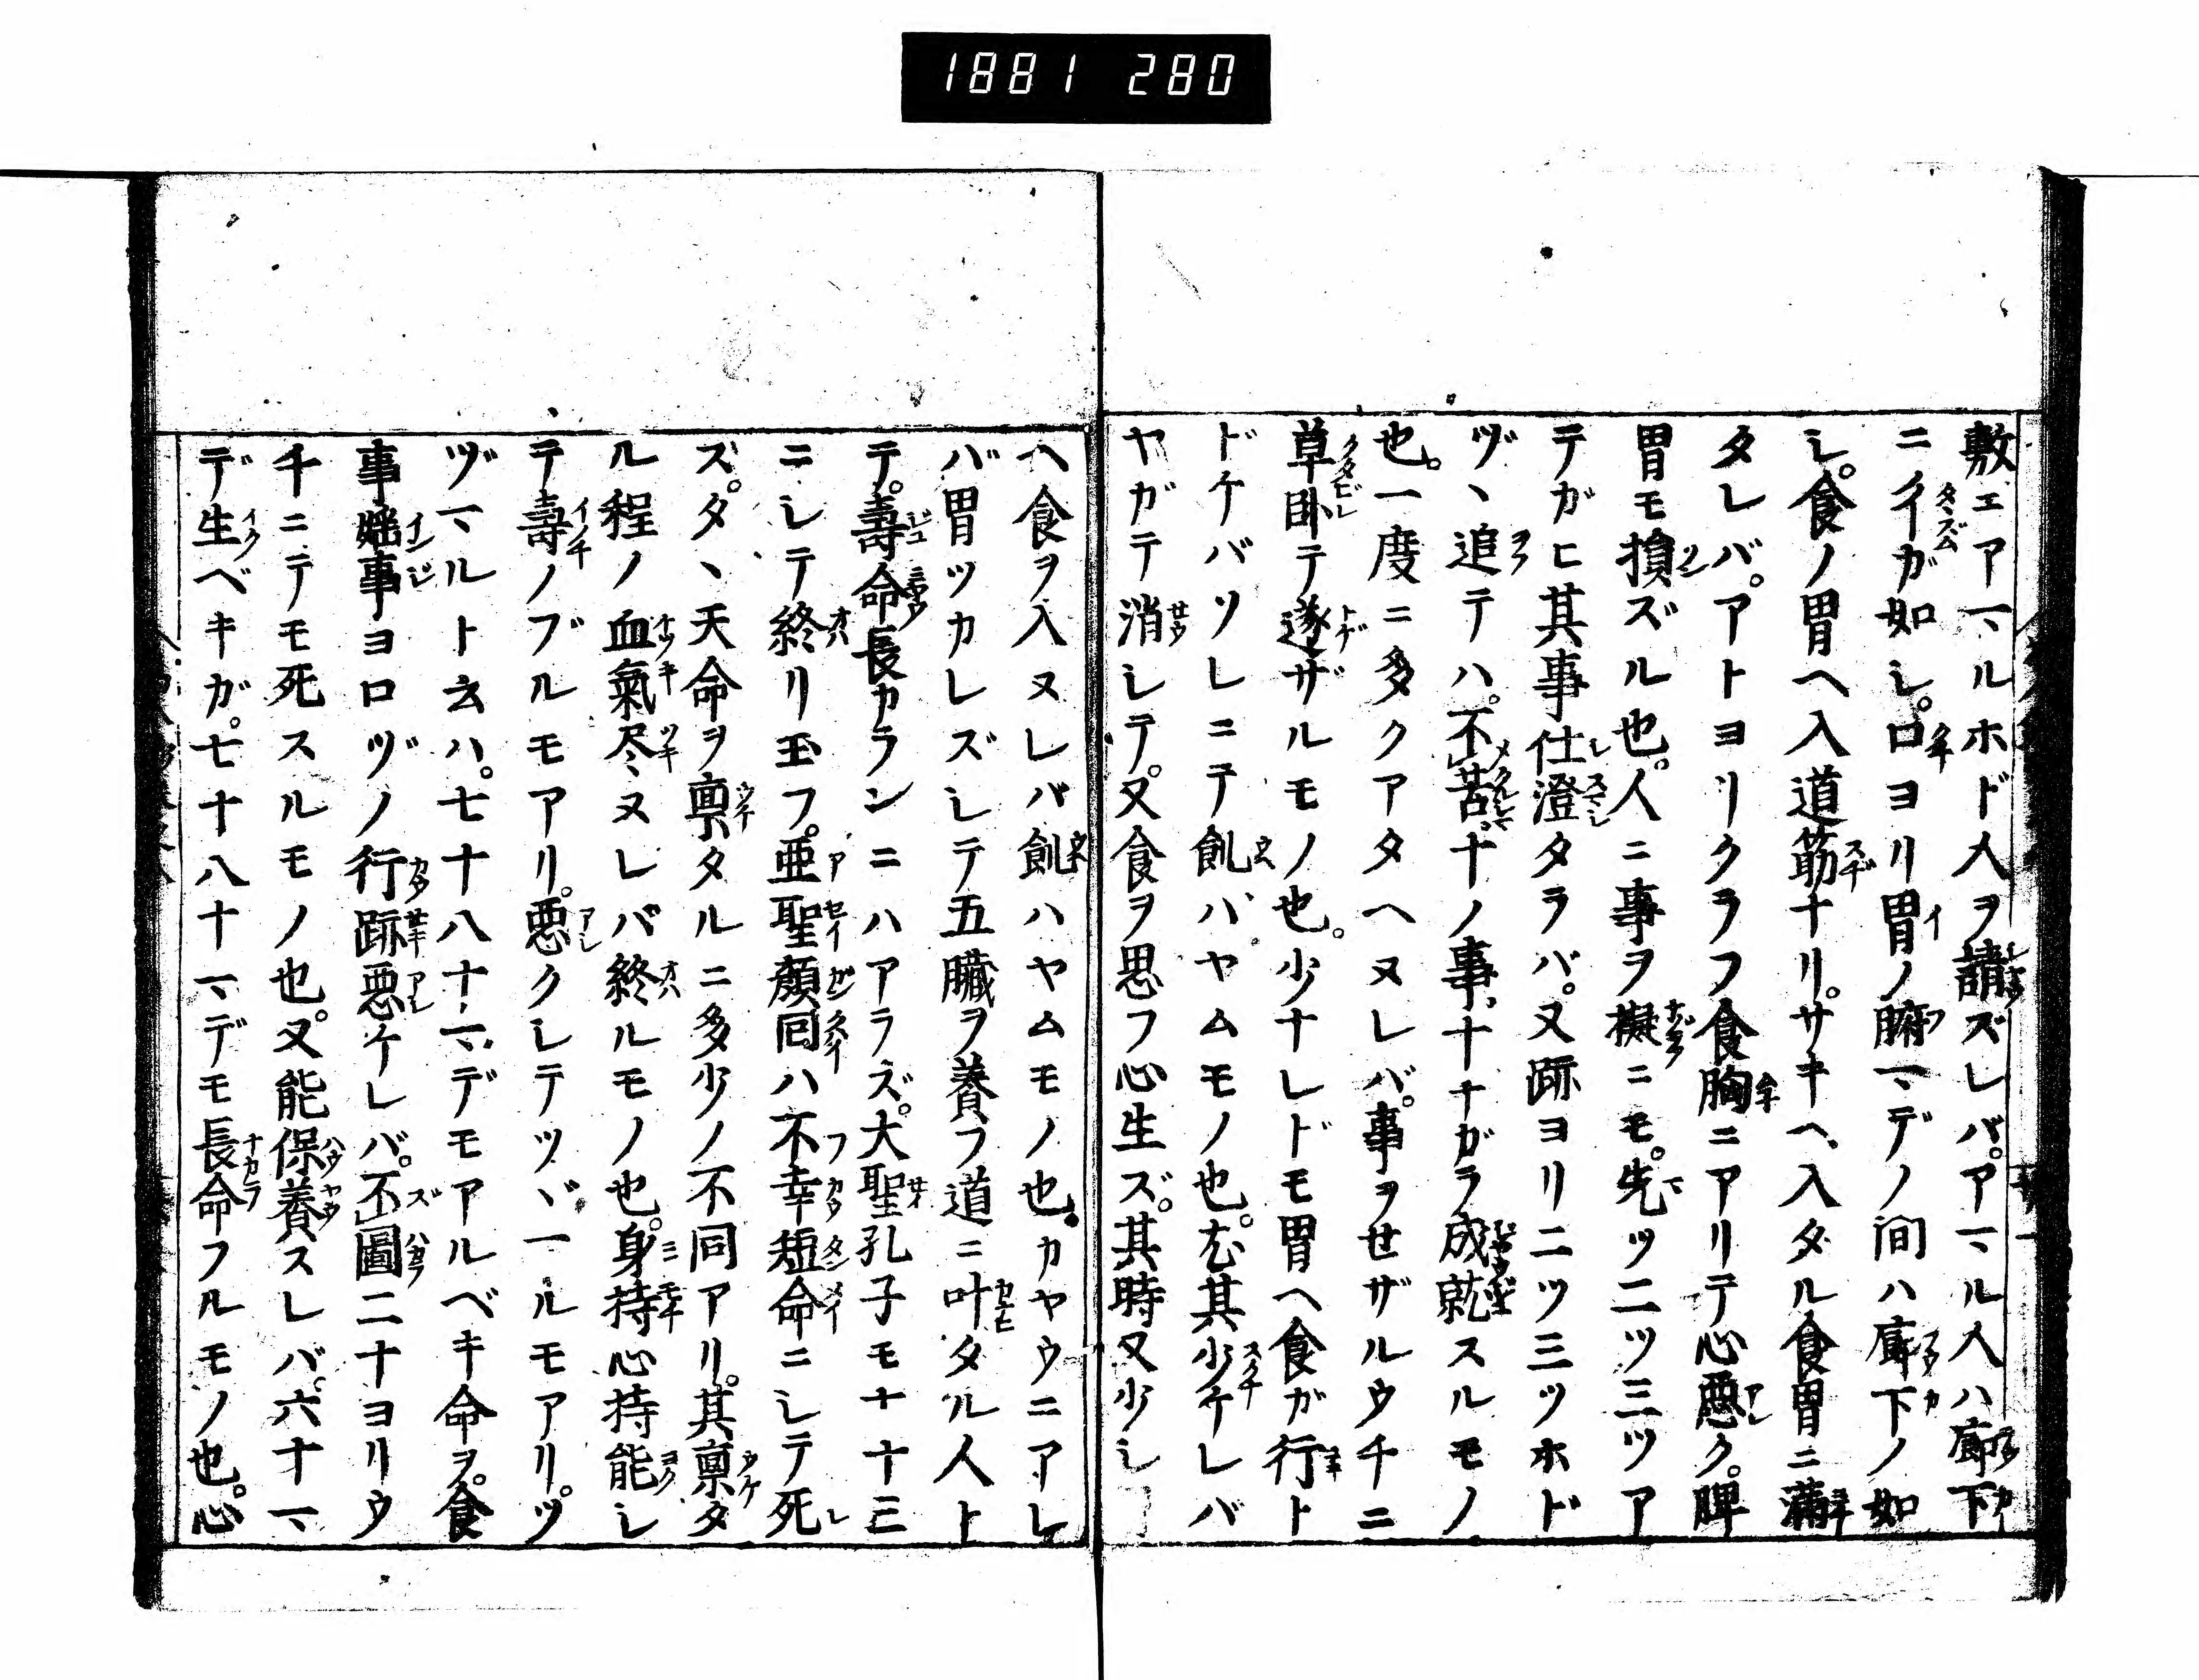 1881 280
敷エアマルホド人ヲ請ズレバ。アマル人ハ廊下
ニイガ如シ。口ヨリ胃ノ腑マデノ間ハ廊下ノ如
シ。食ノ胃ヘ入道筋ナリ。サキヘ入タル食胃ニ満
タレバ。アトヨリクラフ食胸ニアリテ心悪ク。脾
胃モ損ズル也。人ニ事ヲ擬ニモ。先ツ二ツ三ツア
テガヒ其事仕澄タラバ。又跡ヨリ二ツ三ツホド
ヅヽ追テハ。不苦。十ノ事、十ナガラ成就スルモノ
也。一度ニ多クアタヘヌレバ。事ヲせザルウチニ
草臥テ遂ザルモノ也。少ナレドモ胃ヘ食ガ行ト
ドケバソレニテ飢ハヤムモノ也。尤其少ケレバ
ヤガテ消シテ。又食ヲ思フ心生ズ。其時又少シ
ヘ食ヲ入ヌレバ飢ハヤムモノ也。カヤウニアレ
バ胃ツカレズシテ五臓ヲ養フ道ニ叶タル人ト
テ。壽命長カランニハアラズ。大聖孔子モナ十三
ニシテ終リ玉フ。亜聖顔回ハ不幸短命ニシテ死
ズ。タヽ天命ヲ稟タルニ多少ノ不同アリ。其稟タ
ル程ノ血氣尽ヌレバ終ルモノ也。身持心持能シ
テ壽ノブルモアリ。悪クシテツヾマルモアリ。ツ
ヅマルト云ハ。七十八十マデモアルベキ命ヲ。食
事婬事ヨロヅノ行跡悪ケレバ。不圖二十ヨリウ
チニテモ死スルモノ也。又能保養スレバ。六十マ
デ生ベキガ。七十八十マデモ長命フルモノ也。心